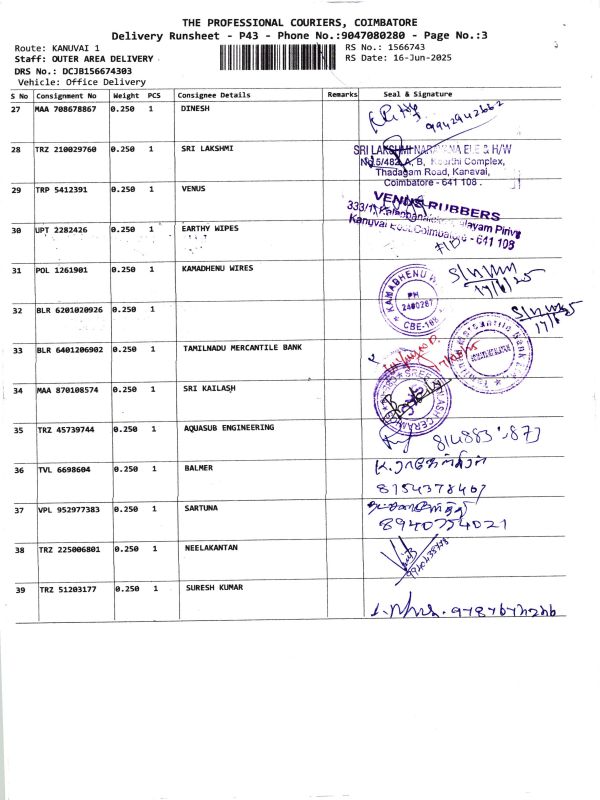 THE PROFESSIONAL COURIERS, COIMBATORE
Delivery Runsheet - P43 - Phone No.:9047080280 - Page No.:3
Route: KANUVAI 1 RS No.: 1566743
Staff: OUTER AREA DELIVERY RS Date: 16-Jun-2025
DRS No.: DCJB156674303
Vehicle: Office Delivery
S No Consignment No Weight PCS Consignee Details Remarks Seal & Signature
27 MAA 708678867 0.250 1 DINESH 9942942662
28 TRZ 210029760 0.250 1 SRI LAKSHMI SRI LAKSHMI NARAYANA ELE & H/W
No.5/482 A, B, Keerthi Complex,
Thadagam Road, Kanavai,
Coimbatore - 641 108.
29 TRP 5412391 0.250 1 VENUS VENUS RUBBERS
30 UPT 2282426 0.250 1 EARTHY WIPES Kanuvai Post, Coimbatore - 641 108
31 POL 1261901 0.250 1 KAMADHENU WIRES KAMADHENU
PH
2400287
CBE-108
17/6/25
32 BLR 6201020926 0.250 1
33 BLR 6401206902 0.250 1 TAMILNADU MERCANTILE BANK
34 MAA 870108574 0.250 1 SRI KAILASH
35 TRZ 45739744 0.250 1 AQUASUB ENGINEERING
36 TVL 6698604 0.250 1 BALMER
8154378467
37 VPL 952977383 0.250 1 SARTUNA
8940754021
38 TRZ 225006801 0.250 1 NEELAKANTAN
39 TRZ 51203177 0.250 1 SURESH KUMAR